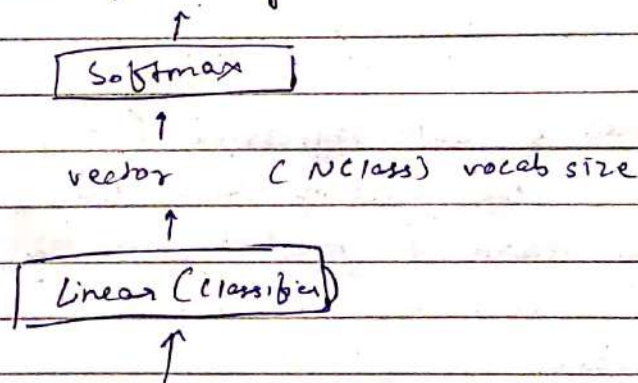 Softmax
vector (NClass) vocab size
Linear (Classifier)